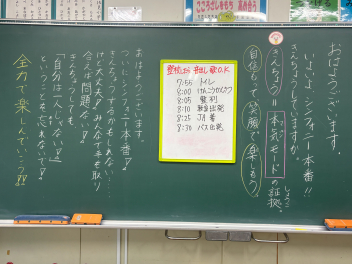 おはようございます。
いよいよ、シンフォニー本番!!
きんちょうしていますか。
きんちょう=本気モードの証拠。
しょうこ
自信もって笑顔で楽しもう。
7:55 トイレ
8:00 けんこうかんさつ
8:05 整列
8:10 教室出発
8:25 JA着
8:30 バス出発
おはようございます。
ついにシンフォニー本番!
きんちょうするかもしれない…
けど大丈夫!みんなで手を取り
合えば問題ない!
きんちょうしても、
「自分は一人じゃない!」
ということを忘れないで!
全力で楽しんでいこう!!